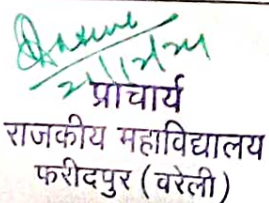 प्राचार्य
राजकीय महाविद्यालय
फरीदपुर (वरेली)